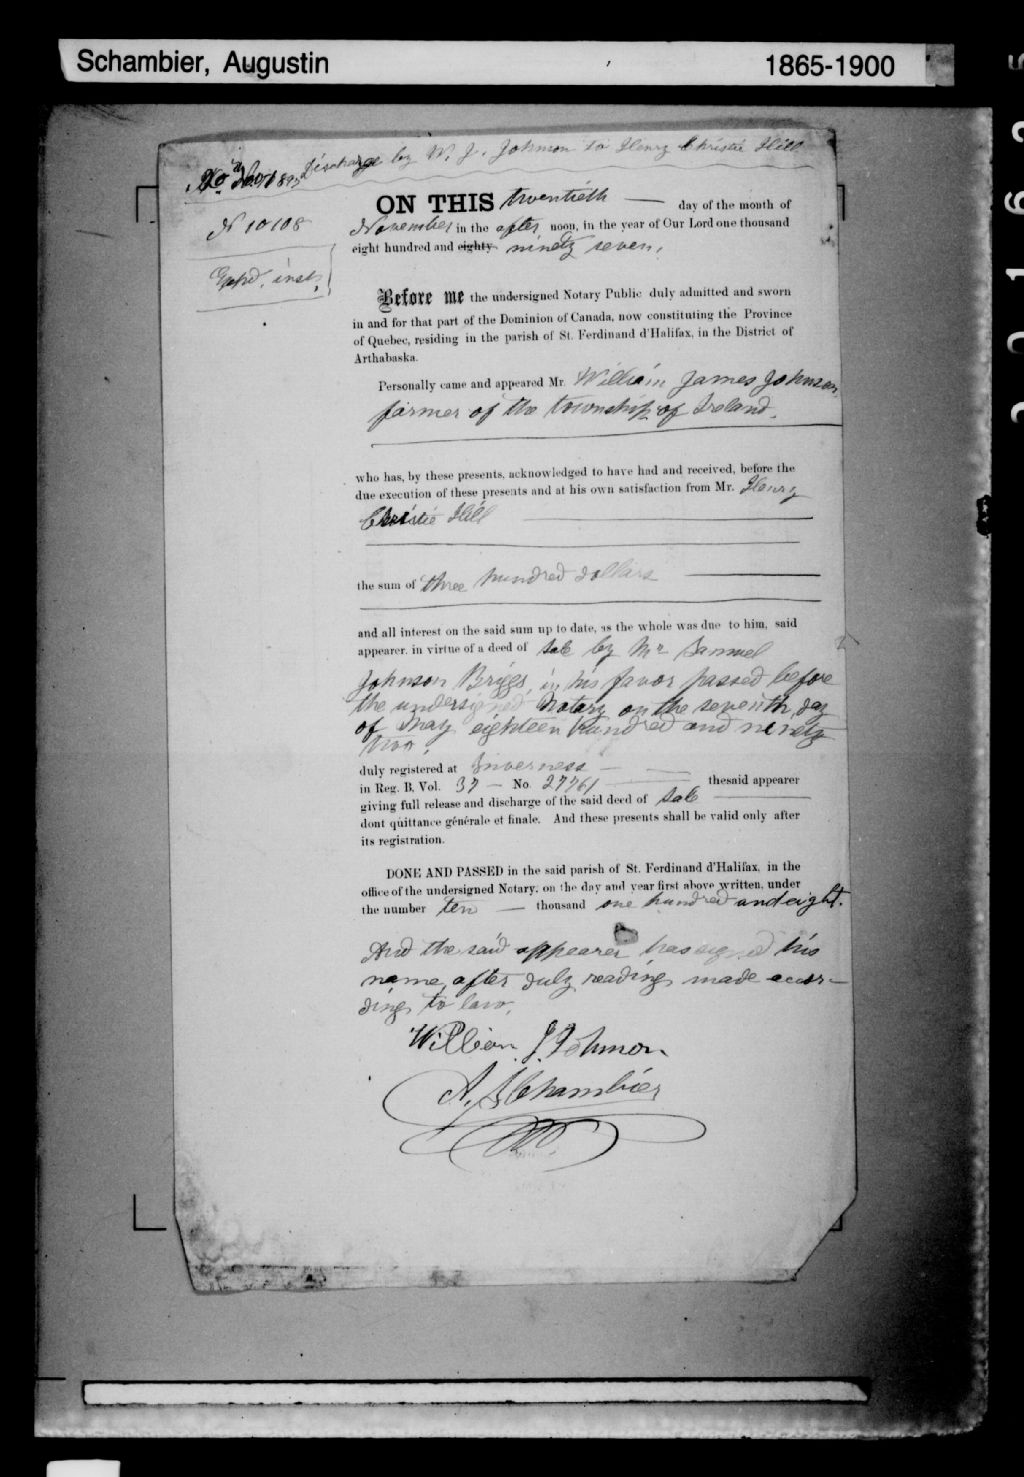 Schambier, Augustin 1865-1900
Discharge by W. J. Johnson to Henry Christie Hill
20 Nov 1897
N 10108
Expd. inst.
ON THIS twentieth — day of the month of
November in the after noon, in the year of Our Lord one thousand
eight hundred and eighty ninety seven.
Before me the undersigned Notary Public duly admitted and sworn
in and for that part of the Dominion of Canada, now constituting the Province
of Quebec, residing in the parish of St. Ferdinand d'Halifax, in the District of
Arthabaska.
Personally came and appeared Mr. William James Johnson,
farmer of the township of Ireland.
who has, by these presents, acknowledged to have had and received, before the
due execution of these presents and at his own satisfaction from Mr. Henry
Christie Hill
the sum of three hundred dollars
and all interest on the said sum up to date, as the whole was due to him, said
appearer, in virtue of a deed of sale by Mr Samuel
Johnson Briggs, in his favor passed before
the undersigned Notary on the seventh day
of May eighteen hundred and ninety
two.
duly registered at Inverness —
in Reg. B, Vol. 37 — No. 27761 — thesaid appearer
giving full release and discharge of the said deed of sale
dont quittance générale et finale. And these presents shall be valid only after
its registration.
DONE AND PASSED in the said parish of St. Ferdinand d'Halifax, in the
office of the undersigned Notary, on the day and year first above written, under
the number ten — thousand one hundred and eight.
And the said appearer has signed his
name, after duly reading made accor-
ding to law.
William J. Johnson
A. Schambier